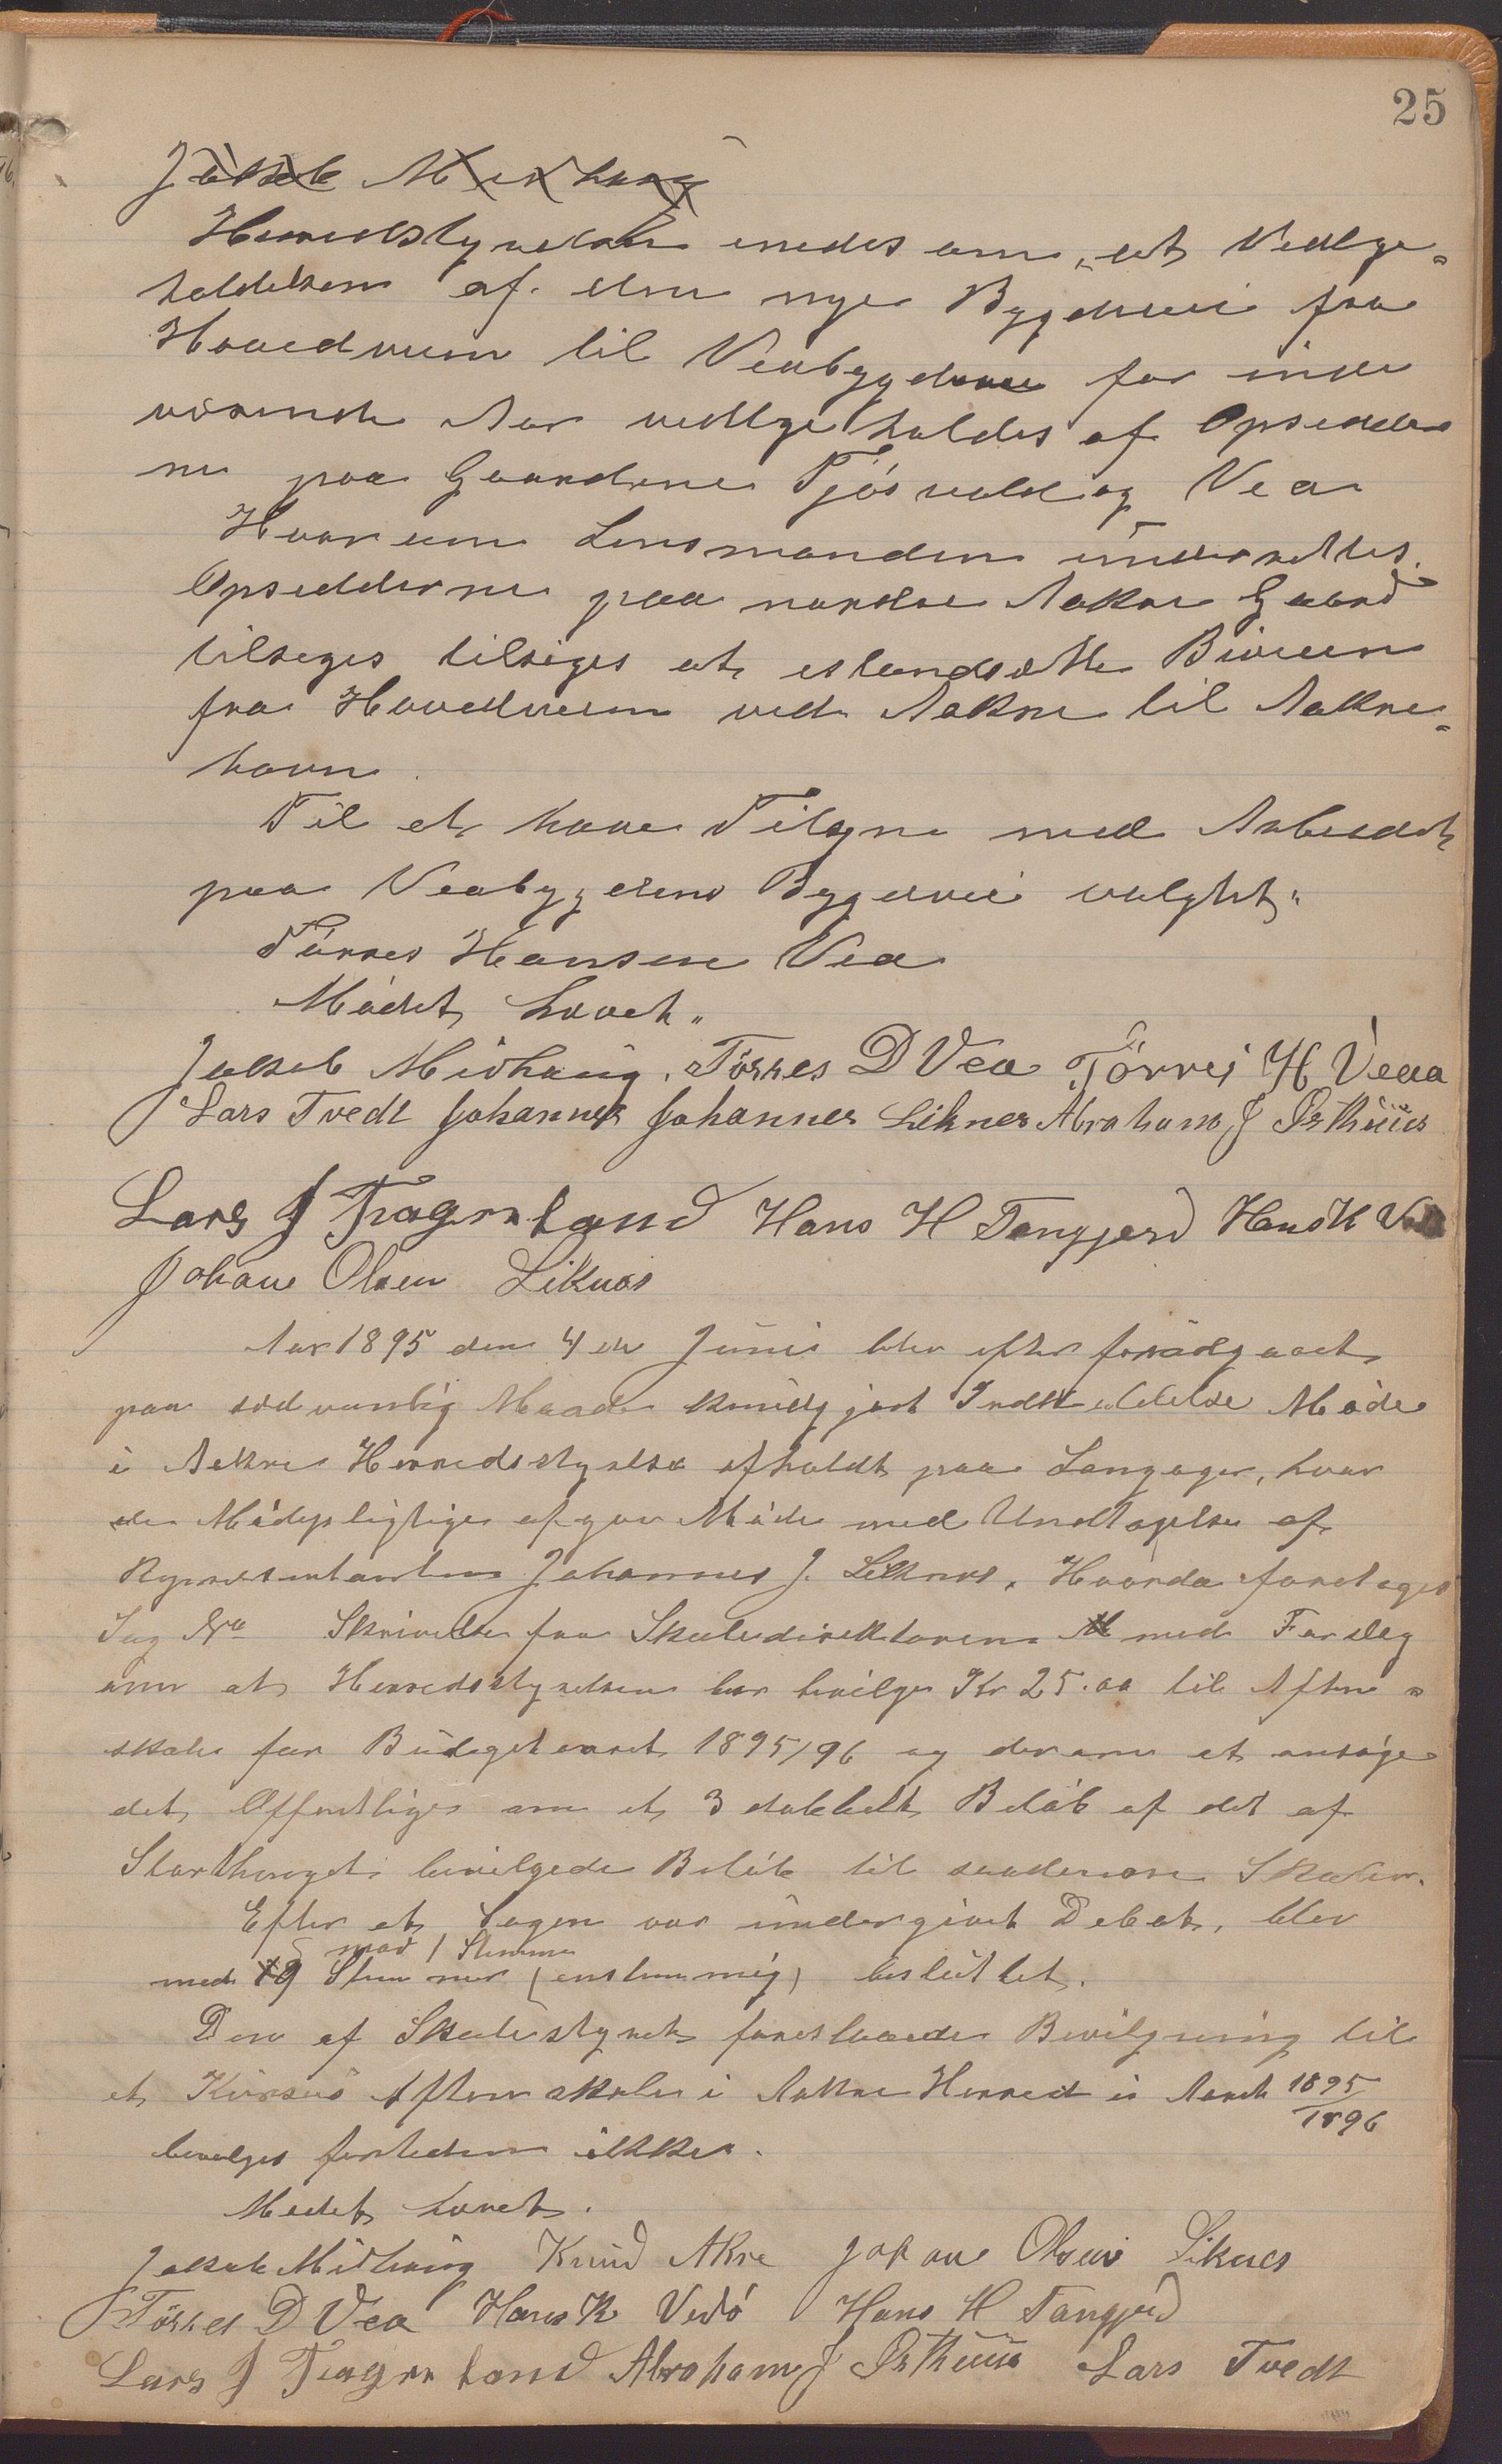 25
Jakob Midhaug
Herredstyrelsen enedes om, at Vedlge-
holdelsen af den nye Bygdevei fra
Hovedveien til Veabygden for inde
værende Aar vedlgeholdes af Opsidder
ne paa Gaardene Tjösvold og Vea
Hvorom Lensmanden underrettes.
Opsidderne paa nordre Aakre Gaard
tilseges tilsiges at istandsætte Biveien
fra Hovedveien ved Aakre til Aakre-
havn.
Til at have Tilsyn med Arbeidet
paa Veabygdens Bygdevei valgtes
Törres Hansen Vea
Mödet hævet.
Jakob Midhaug, Törres D Vea Törres H Veaa
Lars Tvedt Johannes Johannes Liknes Abraham J Østhuus
Lars J Tragerland Hans H Tangjerd Hans K
Johan Olsen Liknes
Aar 1895 den 4de Juni blev efter foraadgaaet
paa sædvanlig Maade kundgjort Indkaldelse Möde
i Aakre Herredsstyrelse afholdt paa Langager, hvor
de Mödepligtige afgav Möde med Undtagelse af
Repræsentanten Johannes J. Liknes. Hvorda foretoges
Sag No Skrivelse fra Skoledirektören med Forslag
om at Herredsstyrelsen bör bevilge Kr 25.00 til Aften-
skole for Budgetaaret 1895/96 og derom at ansöge
det Offentlige om et 3 dobbelt Belöb af det af
Storthinget bevilgede Belöb til saadanne Skoler.
Efter at Sagen var undergivet Debat, blev
mod 1 Stemme
med 9 Stemmer (enstemmig) besluttet.
Den af Skolestyret foreslaaede Bevilgning til
et Kursus Aftenskole i Aakre Herred i Aaret 1895/1896
bevilges forleden ikke.
Mödet hævet.
Jakob Midhaug Knud Akre Johan Olsen Liknes
Törres D Vea Hans K Vedö Hans H Tangjerd
Lars J Tragerland Abraham J Østhuus Lars Tvedt